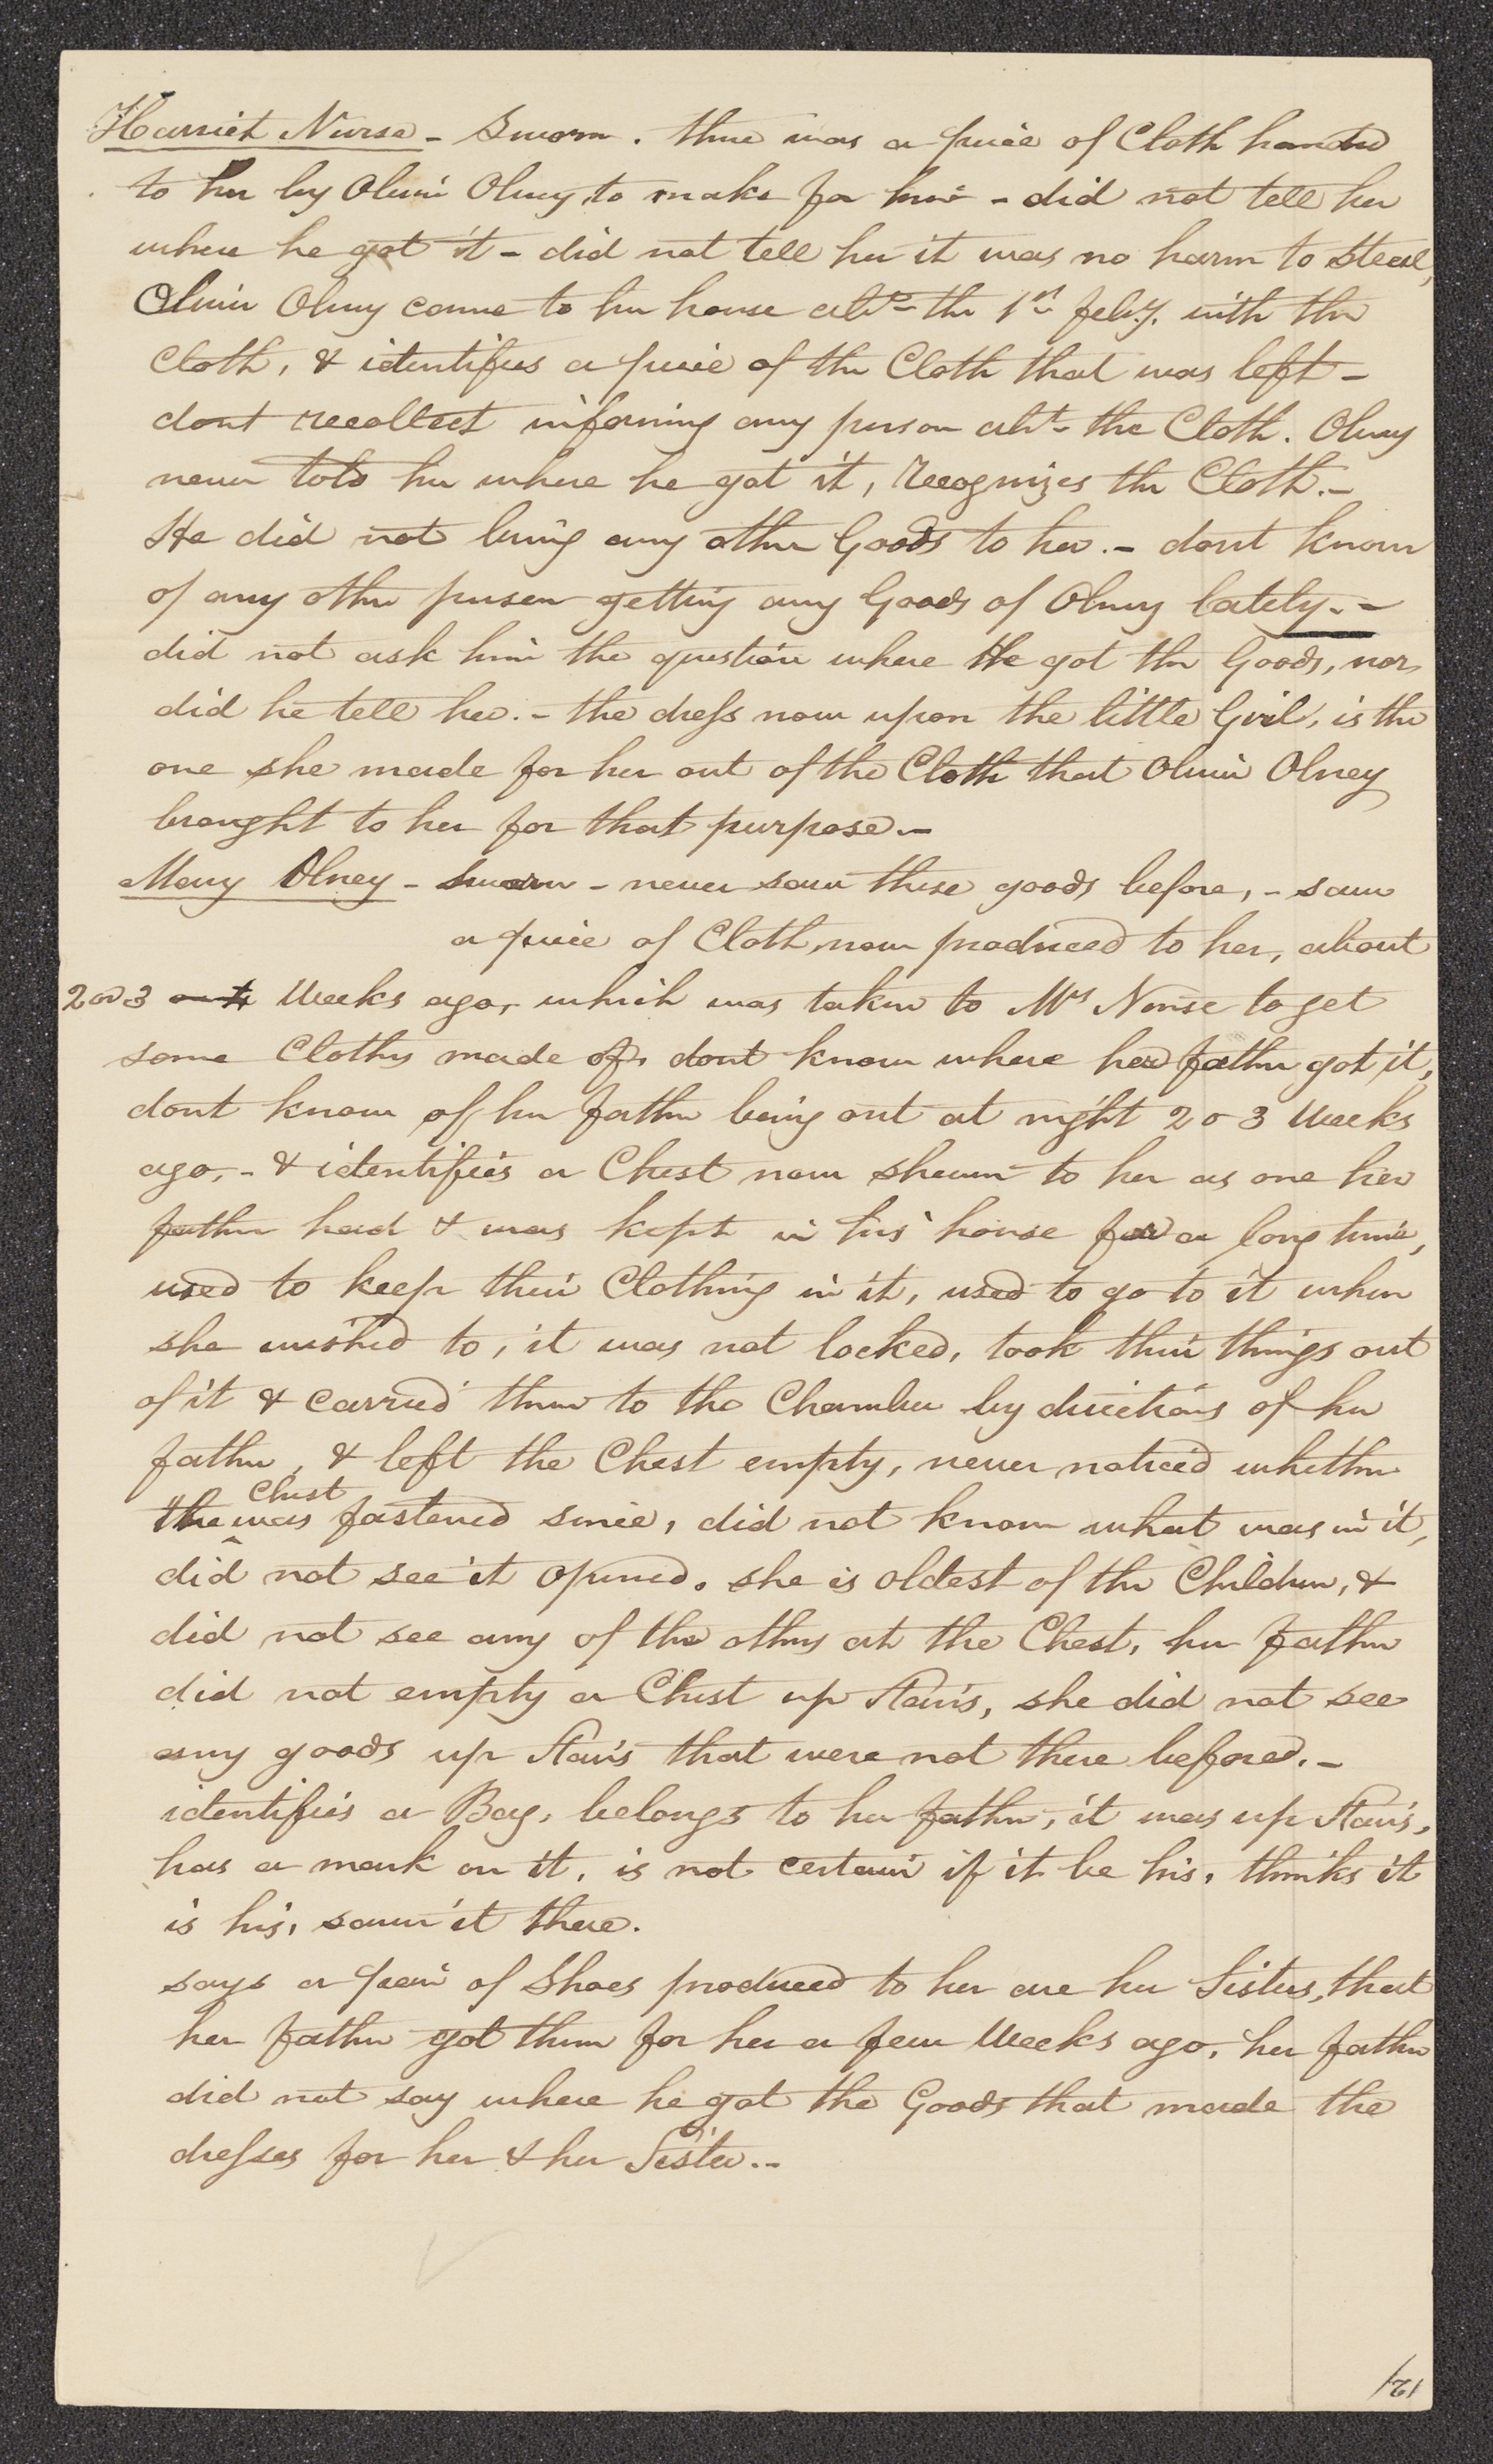 Harriet Nurse - Sworn. there was a piece of Cloth handed
to her by Oliver Olney to make for him - did not tell her
where he got it - did not tell her it was no harm to Steal,
Oliver Olney came to her house abt the 1st feby. with the
Cloth, & identifies a piece of the Cloth that was left -
dont recollect informing any person abt the Cloth. Olney
never told her where he got it, recognizes the Cloth. -
He did not bring any other Goods to her. - dont know
of any other person getting any Goods of Olney lately. -
did not ask him the question where He got the Goods, nor
did he tell her. - the dress now upon the little Girl, is the
one she made for her out of the Cloth that Oliver Olney
brought to her for that purpose. -
Mary Olney - sworn - never saw these goods before, - saw
a piece of Cloth, now produced to her, about
2 or 3 or 4 Weeks ago, which was taken to Mrs Nurse to get
some Cloths made of, dont know where her father got it,
dont know of her father being out at night 2 o 3 Weeks
ago, - & identifies a Chest now shewn to her as one her
father had & was kept in his house for a long time,
used to keep their Clothing in it, used to go to it when
she wished to, it was not locked, took their things out
of it & carried them to the Chamber by directions of her
father, & left the Chest empty, never noticed whether
the Chest was fastened since, did not know what was in it,
did not see it opened. she is oldest of the Children, &
did not see any of the others at the Chest, her father
did not empty a Chest up Stairs, she did not see
any goods up Stairs that were not there before. -
identifies a Bag, belongs to her father, it was up Stairs,
has a mark on it, is not certain if it be his, thinks it
is his, saw it there.
says a pair of Shoes produced to her are her Sisters, that
her father got them for her a few Weeks ago, her father
did not say where he got the Goods that made the
dresses for her & her Sister. -
121